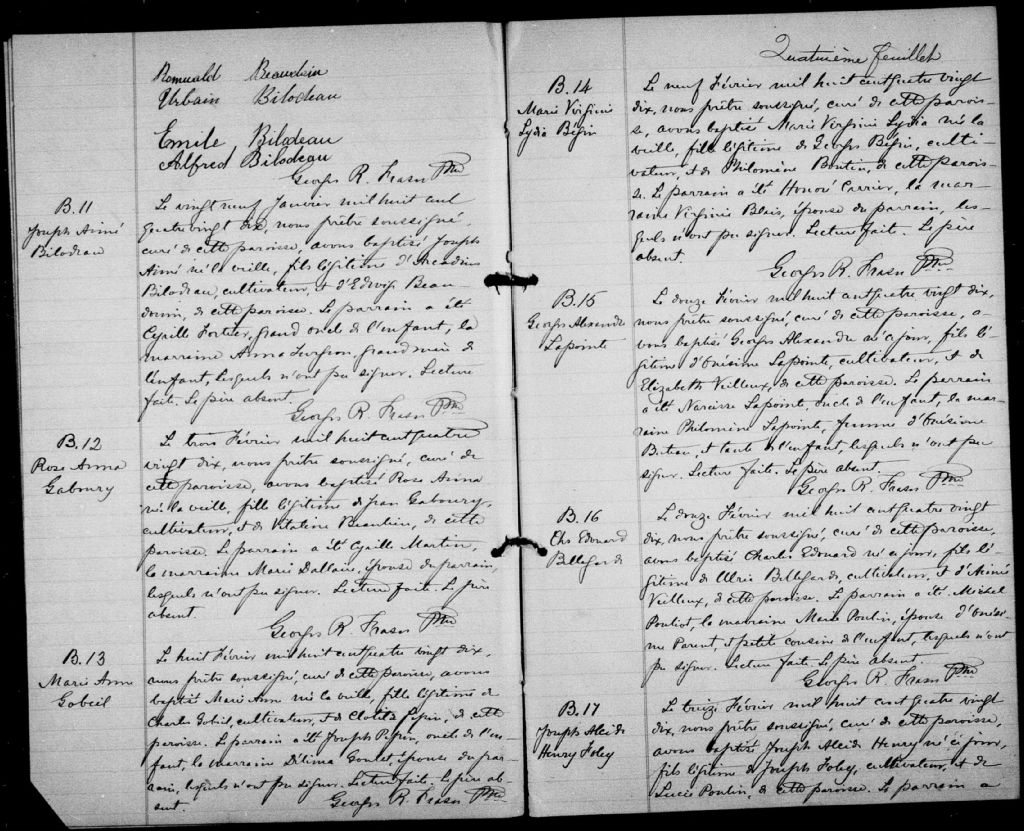 Romuald Beaudoin
Urbain Bilodeau
Emile Bilodeau
Alfred Bilodeau
Georges R. Fraser Ptre
B.11
Joseph Aimé
Bilodeau
Le vingt neuf Janvier mil huit cent
quatre vingt dix, nous prêtre soussigné,
curé de cette paroisse, avons baptisé Joseph
Aimé né la veille, fils légitime d'Arcadius
Bilodeau, cultivateur, et d'Edwige Beau-
doin, de cette paroisse. Le parrain a été
Cyrille Fortier, grand oncle de l'enfant, la
marraine Anna Turgeon, grand mère de
l'enfant, lesquels n'ont pu signer. Lecture
faite. Le père absent.
Georges R. Fraser Ptre
B.12
Rose Anna
Gaboury
Le trois Février mil huit cent quatre
vingt dix, nous prêtre soussigné, curé de
cette paroisse, avons baptisé Rose Anna
née la veille, fille légitime de Jean Gaboury,
cultivateur, et de Vitaline Beaulieu, de cette
paroisse. Le parrain a été Cyrille Martin,
la marraine Marie Dallaire, épouse du parrain,
lesquels n'ont pu signer. Lecture faite. Le père
absent.
Georges R. Fraser Ptre
B.13
Marie Anne
Gobeil
Le huit Février mil huit cent quatre vingt dix,
nous prêtre soussigné, curé de cette paroisse, avons
baptisé Marie Anne née la veille, fille légitime de
Charles Gobeil, cultivateur, et de Clotilde Pepin, de cette
paroisse. Le parrain a été Joseph Pepin, oncle de l'en-
fant, la marraine Délima Goulet, épouse du par-
rain, lesquels n'ont pu signer. Lecture faite. Le père ab-
sent.
Georges R. Fraser Ptre
Quatrième feuillet
B.14
Marie Virginie
Lydia Bégin
Le neuf Février mil huit cent quatre vingt
dix, nous prêtre soussigné, curé de cette parois-
se, avons baptisé Marie Virginie Lydia née la
veille, fille légitime de Georges Bégin, culti-
vateur, et de Philomène Boutin, de cette parois-
se. Le parrain a été Honoré Carrier, la mar-
raine Virginie Blais, épouse du parrain, les-
quels n'ont pu signer. Lecture faite. Le père
absent.
Georges R. Fraser Ptre
B.15
Georges Alexandre
Lapointe
Le douze Février mil huit cent quatre vingt dix,
nous prêtre soussigné, curé de cette paroisse, a-
vons baptisé Georges Alexandre né ce jour, fils lé-
gitime d'Onésime Lapointe, cultivateur, et de
Elizabeth Veilleux, de cette paroisse. Le parrain
a été Narcisse Lapointe, oncle de l'enfant, la mar-
raine Philomène Lapointe, femme d'Onésime
Buteau, et tante de l'enfant, lesquels n'ont pu
signer. Lecture faite. Le père absent.
Georges R. Fraser Ptre
B.16
Chs Edouard
Bellegarde
Le douze Février mil huit cent quatre vingt
dix, nous prêtre soussigné, curé de cette paroisse,
avons baptisé Charles Edouard né ce jour, fils lé-
gitime de Ulric Bellegarde, cultivateur, et d'Aimée
Veilleux, de cette paroisse. Le parrain a été Michel
Pouliot, la marraine Marie Poulin, épouse d'Onési-
me Parent, et petite cousine de l'enfant, lesquels n'ont
pu signer. Lecture faite. Le père absent.
Georges R. Fraser Ptre
B.17
Joseph Alcide
Henry Foley
Le treize Février mil huit cent quatre vingt
dix, nous prêtre soussigné, curé de cette paroisse,
avons baptisé Joseph Alcide Henry né ce jour,
fils légitime de Joseph Foley, cultivateur, et de
Lucie Poulin, de cette paroisse. Le parrain a